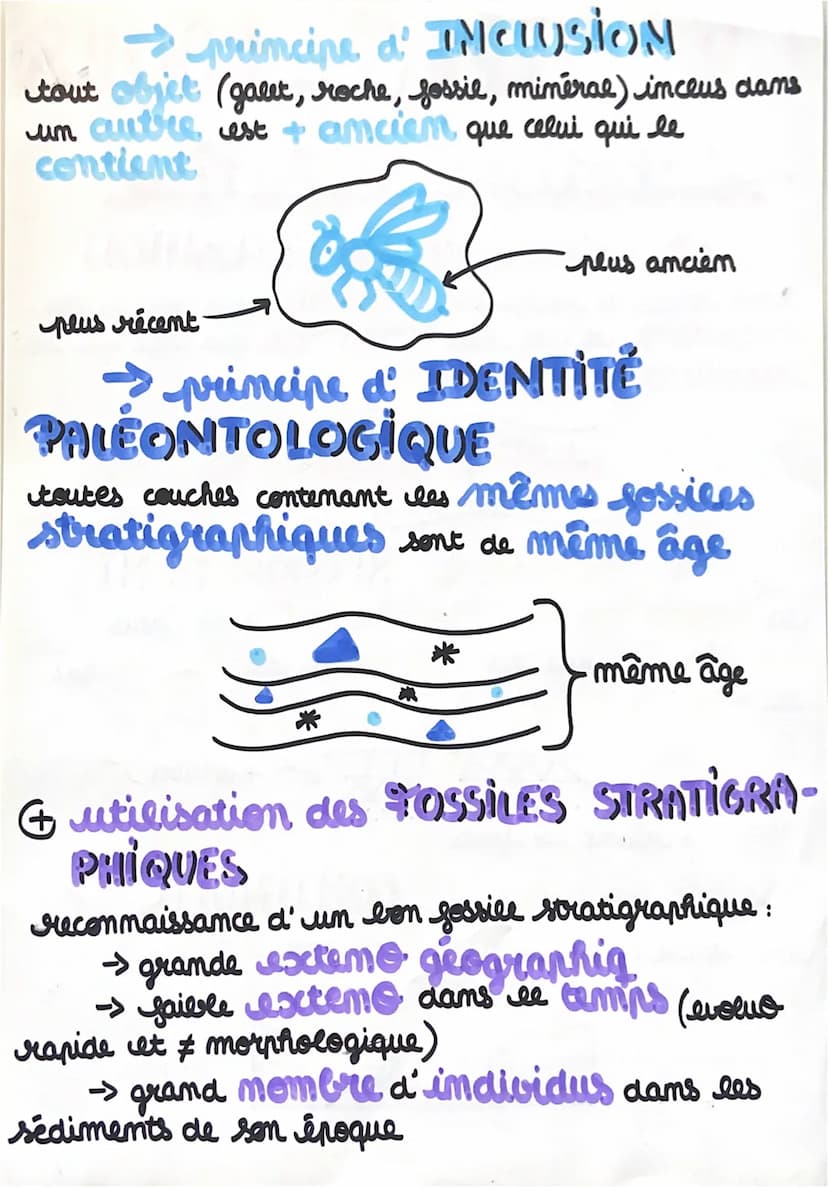 → principe d' INCLUSION
tout objet (galet, roche, fossile, minéral) inclus dans
un autre est + ancien que celui qui le
contient
plus ancien
plus récent
→ principe d' IDENTITÉ
PALÉONTOLOGIQUE
toutes couches contenant les mêmes fossiles
stratigraphiques sont de même âge
même âge
⊕ utilisation des FOSSILES STRATIGRA-
PHIQUES
reconnaissance d'un bon fossile stratigraphique :
→ grande exten° géographiq
→ faible exten° dans le temps (évolu°
rapide et ≠ morphologique)
→ grand nombre d'individus dans les
sédiments de son époque